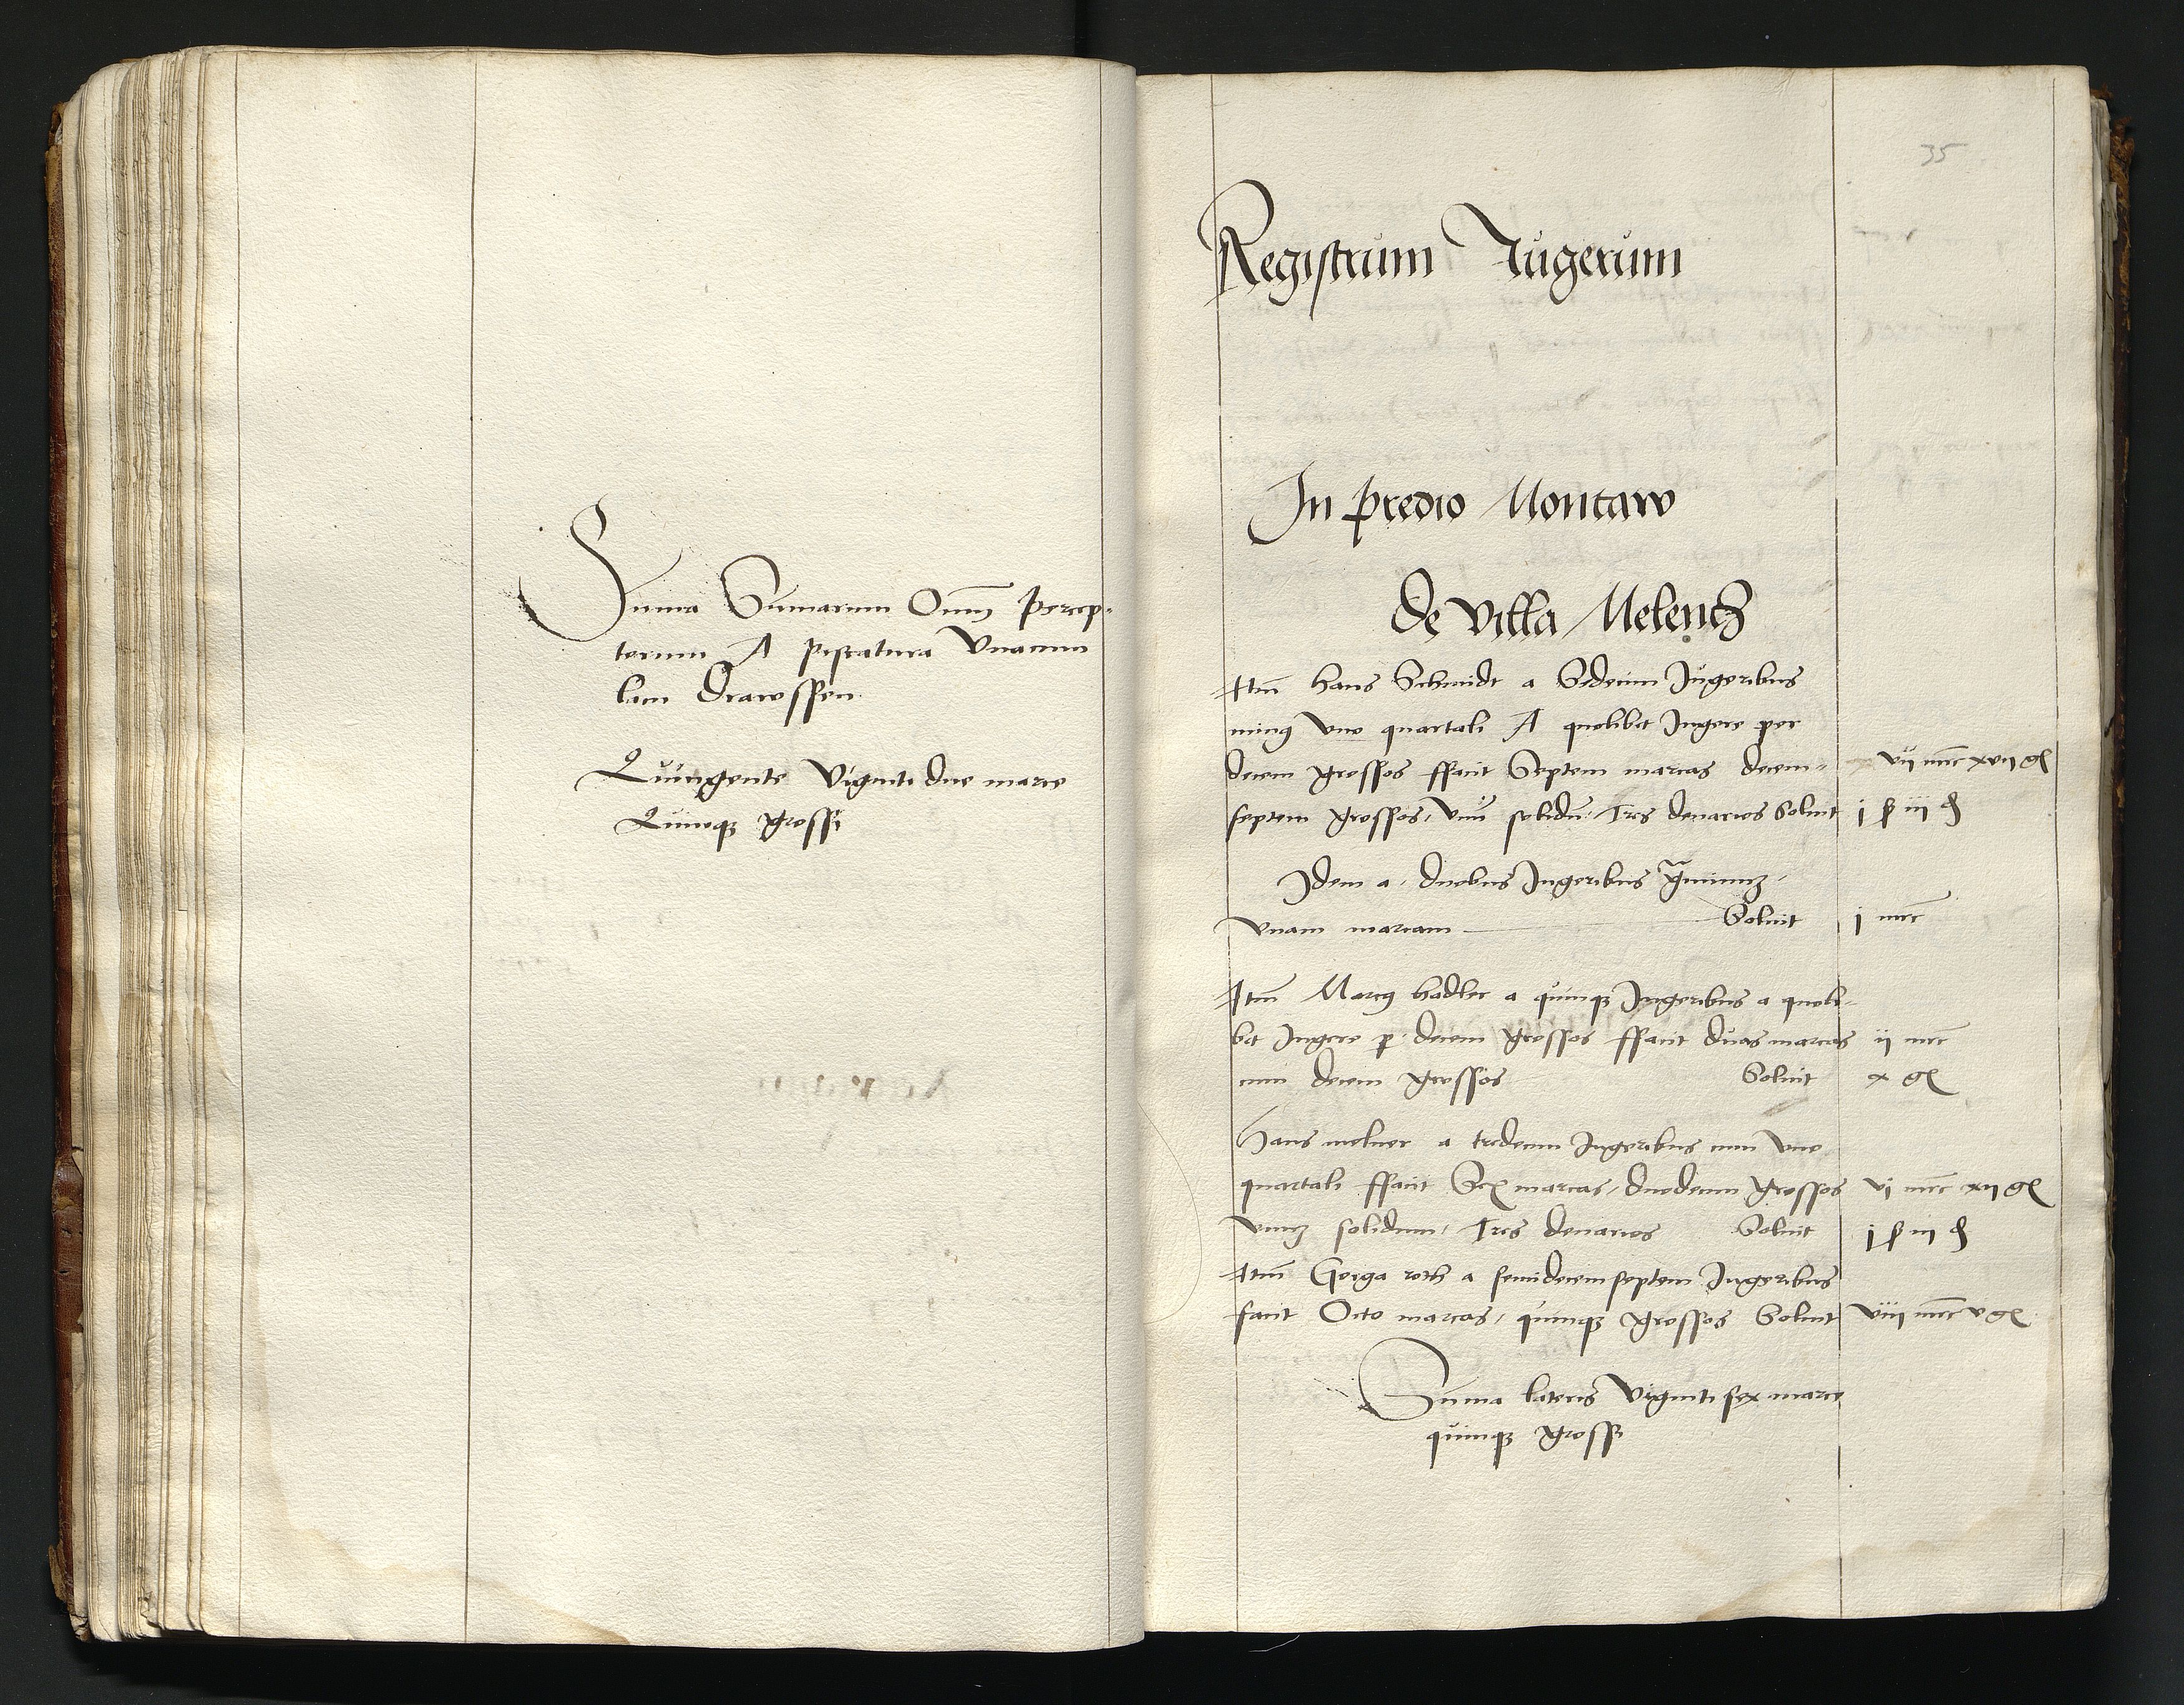 Suma Sumarum Omnẽ percep-
torum A piscatura Vnacum
lacu Drawssen
Quingente Viginti due marce
Quinqꝫ grossi
35
Registrum Iugerum
In predio Montaw
de villa Melentz
Itm̃ hans Schmidt a Sedecim Jugeribus
minꝰ vno quartali A quolibet Jugere per
decem grossos ffacit Septem marcas decem-
septem grossos, vnũ solidũ, Tres denarios Soluit
vii mrc xvii gʒ
j ß iii ₰
Idem a duobus Jugeribus
vnam marcam Soluit
j mrc
Itm̃ Marcꝰ hadler a quinqꝫ Jugeribus a quoli-
bet Jugere p decem grossos ffacit duas marcas
cum decem grossos Soluit
ii mrc
x gʒ
Hans molner a tredecim Jugeribus cum vno
quartali ffacit Sex marcas, duodecim grossos
vnuʒ solidum, Tres denarios Soluit
vi mrc xii gʒ
j ß iii ₰
Itm̃ Gorga roth a semidecemseptem Jugeribus
facit Octo marcas, quinqꝫ grossos Soluit
viii mrc v gʒ
Suma lateris Viginti sex marce
quinqꝫ gross